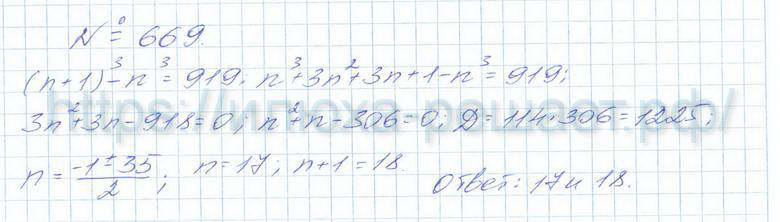 № 669.
(n+1)³-n³=919; n³+3n²+3n+1-n³=919;
3n²+3n-918=0; n²+n-306=0; D=1+4·306=1225;
n=(-1±35)/2; n=17; n+1=18.
Ответ: 17 и 18.
https://илюха-решает.рф/